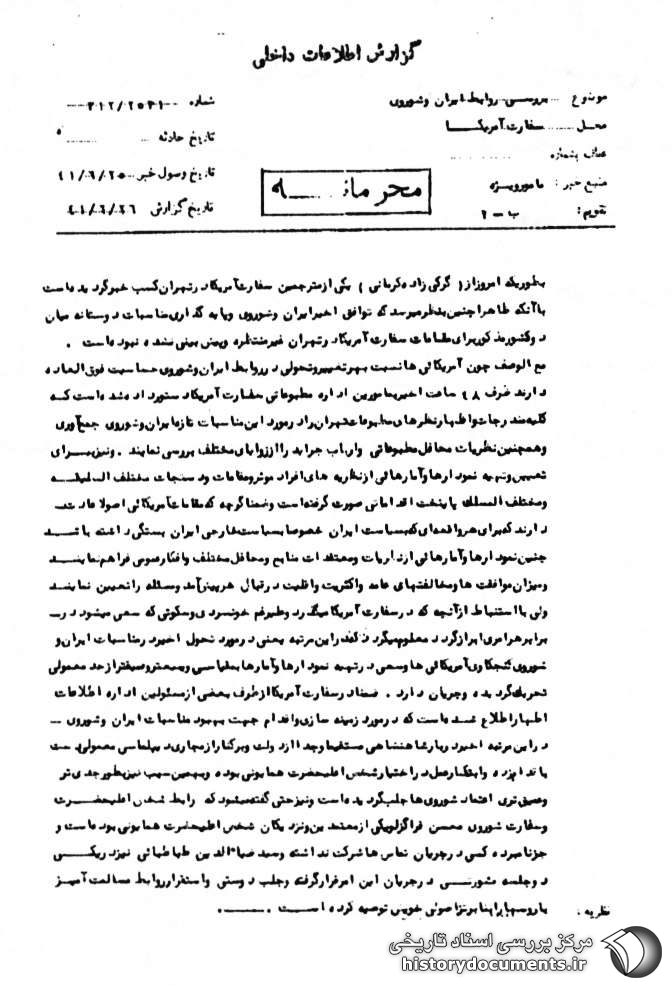 گزارش اطلاعات داخلی
موضوع ... بررسی روابط ایران و شوروی
شماره ۳۱۲/۲۵۴۱
محل ... سفارت آمریکا
تاریخ حادثه
عطف بشماره
تاریخ وصول خبر ۴۱/۶/۲۵
منبع خبر : مامور ویژه
محرمانه
تاریخ گزارش ۴۱/۶/۲۶
تقویم : ب - ۲
بطوریکه امروز از ( گرکی زاده کرمانی ) یکی از مترجمین سفارت آمریکا در تهران کسب خبر گردیده است
با آنکه ظاهرا چنین بنظر میرسد که توافق اخیر ایران و شوروی و پایه گذاری مناسبات دوستانه میان
دو کشور مذکور برای مقامات سفارت آمریکا در تهران غیر منتظره و پیش بینی نشده نبوده است .
مع الوصف چون آمریکائی ها نسبت بهر تغییر و تحولی در روابط ایران و شوروی حساسیت فوق العاده
دارند ظرف ۴۸ ساعت اخیر بمامورین اداره مطبوعاتی سفارت آمریکا دستور داده شده است که
کلیه مندرجات و اظهار نظرهای مطبوعات تهران را در مورد این مناسبات تازه ایران و شوروی جمع آوری
و همچنین نظریات محافل مطبوعاتی و ارباب جراید را از زوایای مختلف بررسی نمایند . و نیز برای
تعیین و تهیه نمودارها و آمارهائی از نظریه های افراد موثر و مقامات و دستجات مختلف السلیقه
و مختلف المسلک پایتخت اقداماتی صورت گرفته است و ضمنا گرچه که مقامات آمریکائی اصولا عادت
دارند که برای هر واقعه ای که بسیاست ایران خصوصا بسیاست خارجی ایران بستگی داشته باشد
چنین نمودارها و آمارهائی از نظریات و معتقدات منابع و محافل مختلف و افکار عمومی فراهم نمایند
و میزان موافقت ها و مخالفتهای عامه و اکثریت و اقلیت در قبال هر پیش آمد و مسئله را تعیین نمایند
ولی با استنباط از آنچه که در سفارت آمریکا میگذرد و علیرغم خونسردی و سکوتی که سعی میشود در
برابر هر امری ابراز گردد معلوم میگردد که در این مرتبه یعنی در مورد تحول اخیر در مناسبات ایران و
شوروی کنجکاوی آمریکائی ها و سعی در تهیه نمودارها و آمارها بمقیاسی وسیعتر و عمیقتر از حد معمولی
تحریک گردیده و جریان دارد . ضمنا در سفارت آمریکا از طرف بعضی از مسئولین اداره اطلاعات
اظهار اطلاع شده است که در مورد زمینه سازی و اقدام جهت بهبود مناسبات ایران و شوروی
در این مرتبه اخیر دربار شاهنشاهی مستقیما و جدا از دولت و برکنار از مجاری دیپلماسی معمولی دست
باقدام زده و ابتکار عمل در اختیار شخص اعلیحضرت همایونی بوده و بهمین سبب نیز بطور جدی تر
و عمیق تری اعتماد شوروی ها جلب گردیده است و نیز حتی گفته میشود که رابط شخص اعلیحضرت
و سفارت شوروی محسن قراگزلو یکی از معتمدین و نزدیکان شخص اعلیحضرت همایونی بوده است و
جز نامبرده کسی در جریان تماس ها شرکت نداشته و سید ضیاءالدین طباطبائی نیز در یکی
دو جلسه مشورتی در جریان این امر قرار گرفته و جلب دوستی و استقرار روابط مسالمت آمیز
با روسها را بنا بر نظر اصولی خویش توصیه کرده است .
نظریه :
مرکز بررسی اسناد تاریخی
historydocuments.ir